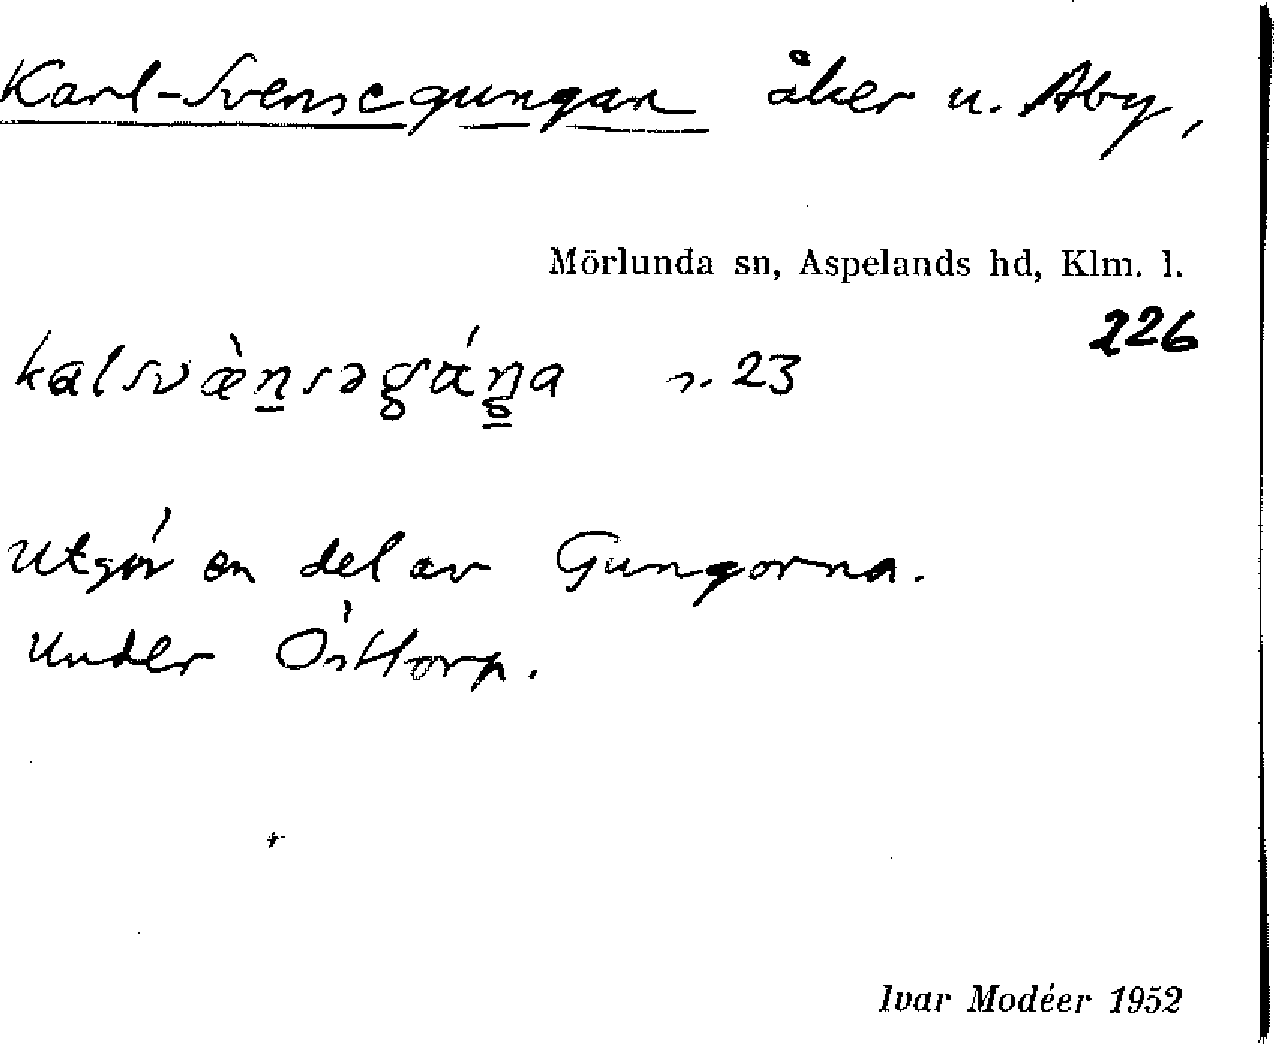 Karl-Svensegungan åker u. Åby,
Mörlunda sn, Aspelands hd, Klm. l.
226
kalsvæ̀n̠səgáŋ̠a n. 23
Utgör en del av Gungorna.
Under Östtorp.
Ivar Modéer 1952